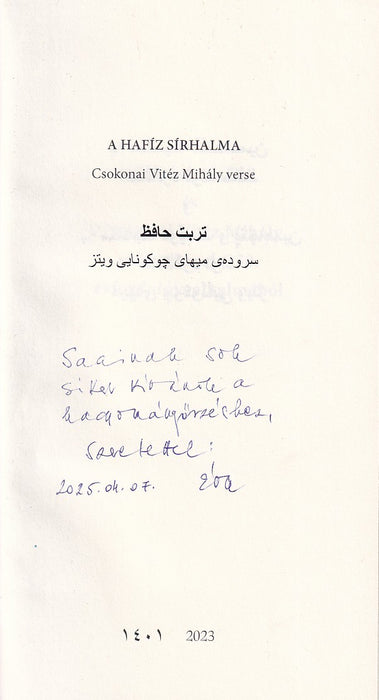 A HAFÍZ SÍRHALMA
Csokonai Vitéz Mihály verse
تربت حافظ
سروده‌ی میهای چوکونایی ویتز
sok
sikert kívánok a
hagyományőrzéshez,
Szeretettel:
2025.04.07. Éva
۱۴۰۱ 2023